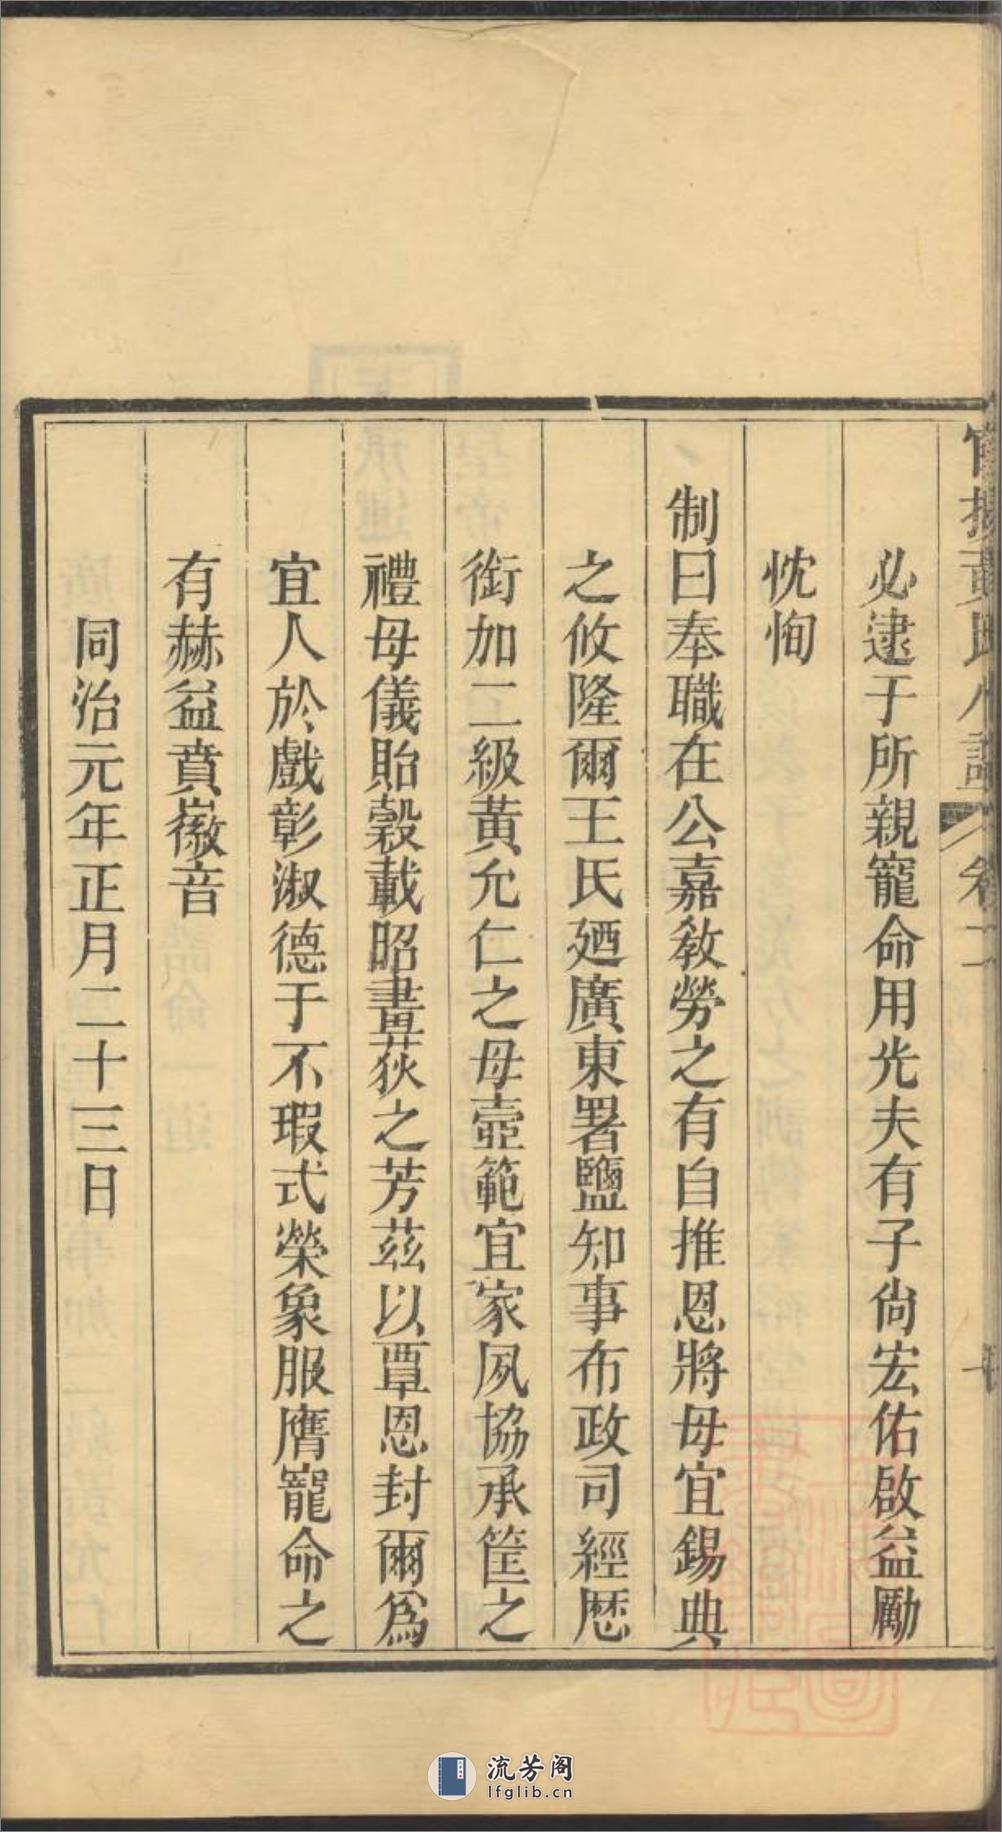 必逮于所親寵命用光夫有子尚宏佑啟益勵
忱恂
制曰奉職在公嘉敎勞之有自推恩將母宜錫典
之攸隆爾王氏廼廣東署鹽知事布政司經歴
銜加二級黃允仁之母壼範宜家夙協承筐之
禮母儀貽穀載昭晝荻之芳茲以覃恩封爾爲
宜人於戲彰淑德于不瑕式榮象服膺寵命之
有赫益賁徽音
同治元年正月二十三日
流芳阁
lfglib.cn